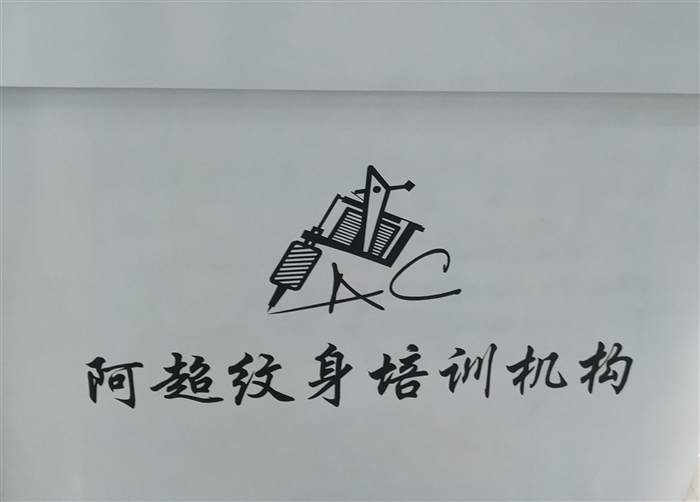 AC
阿超纹身培训机构